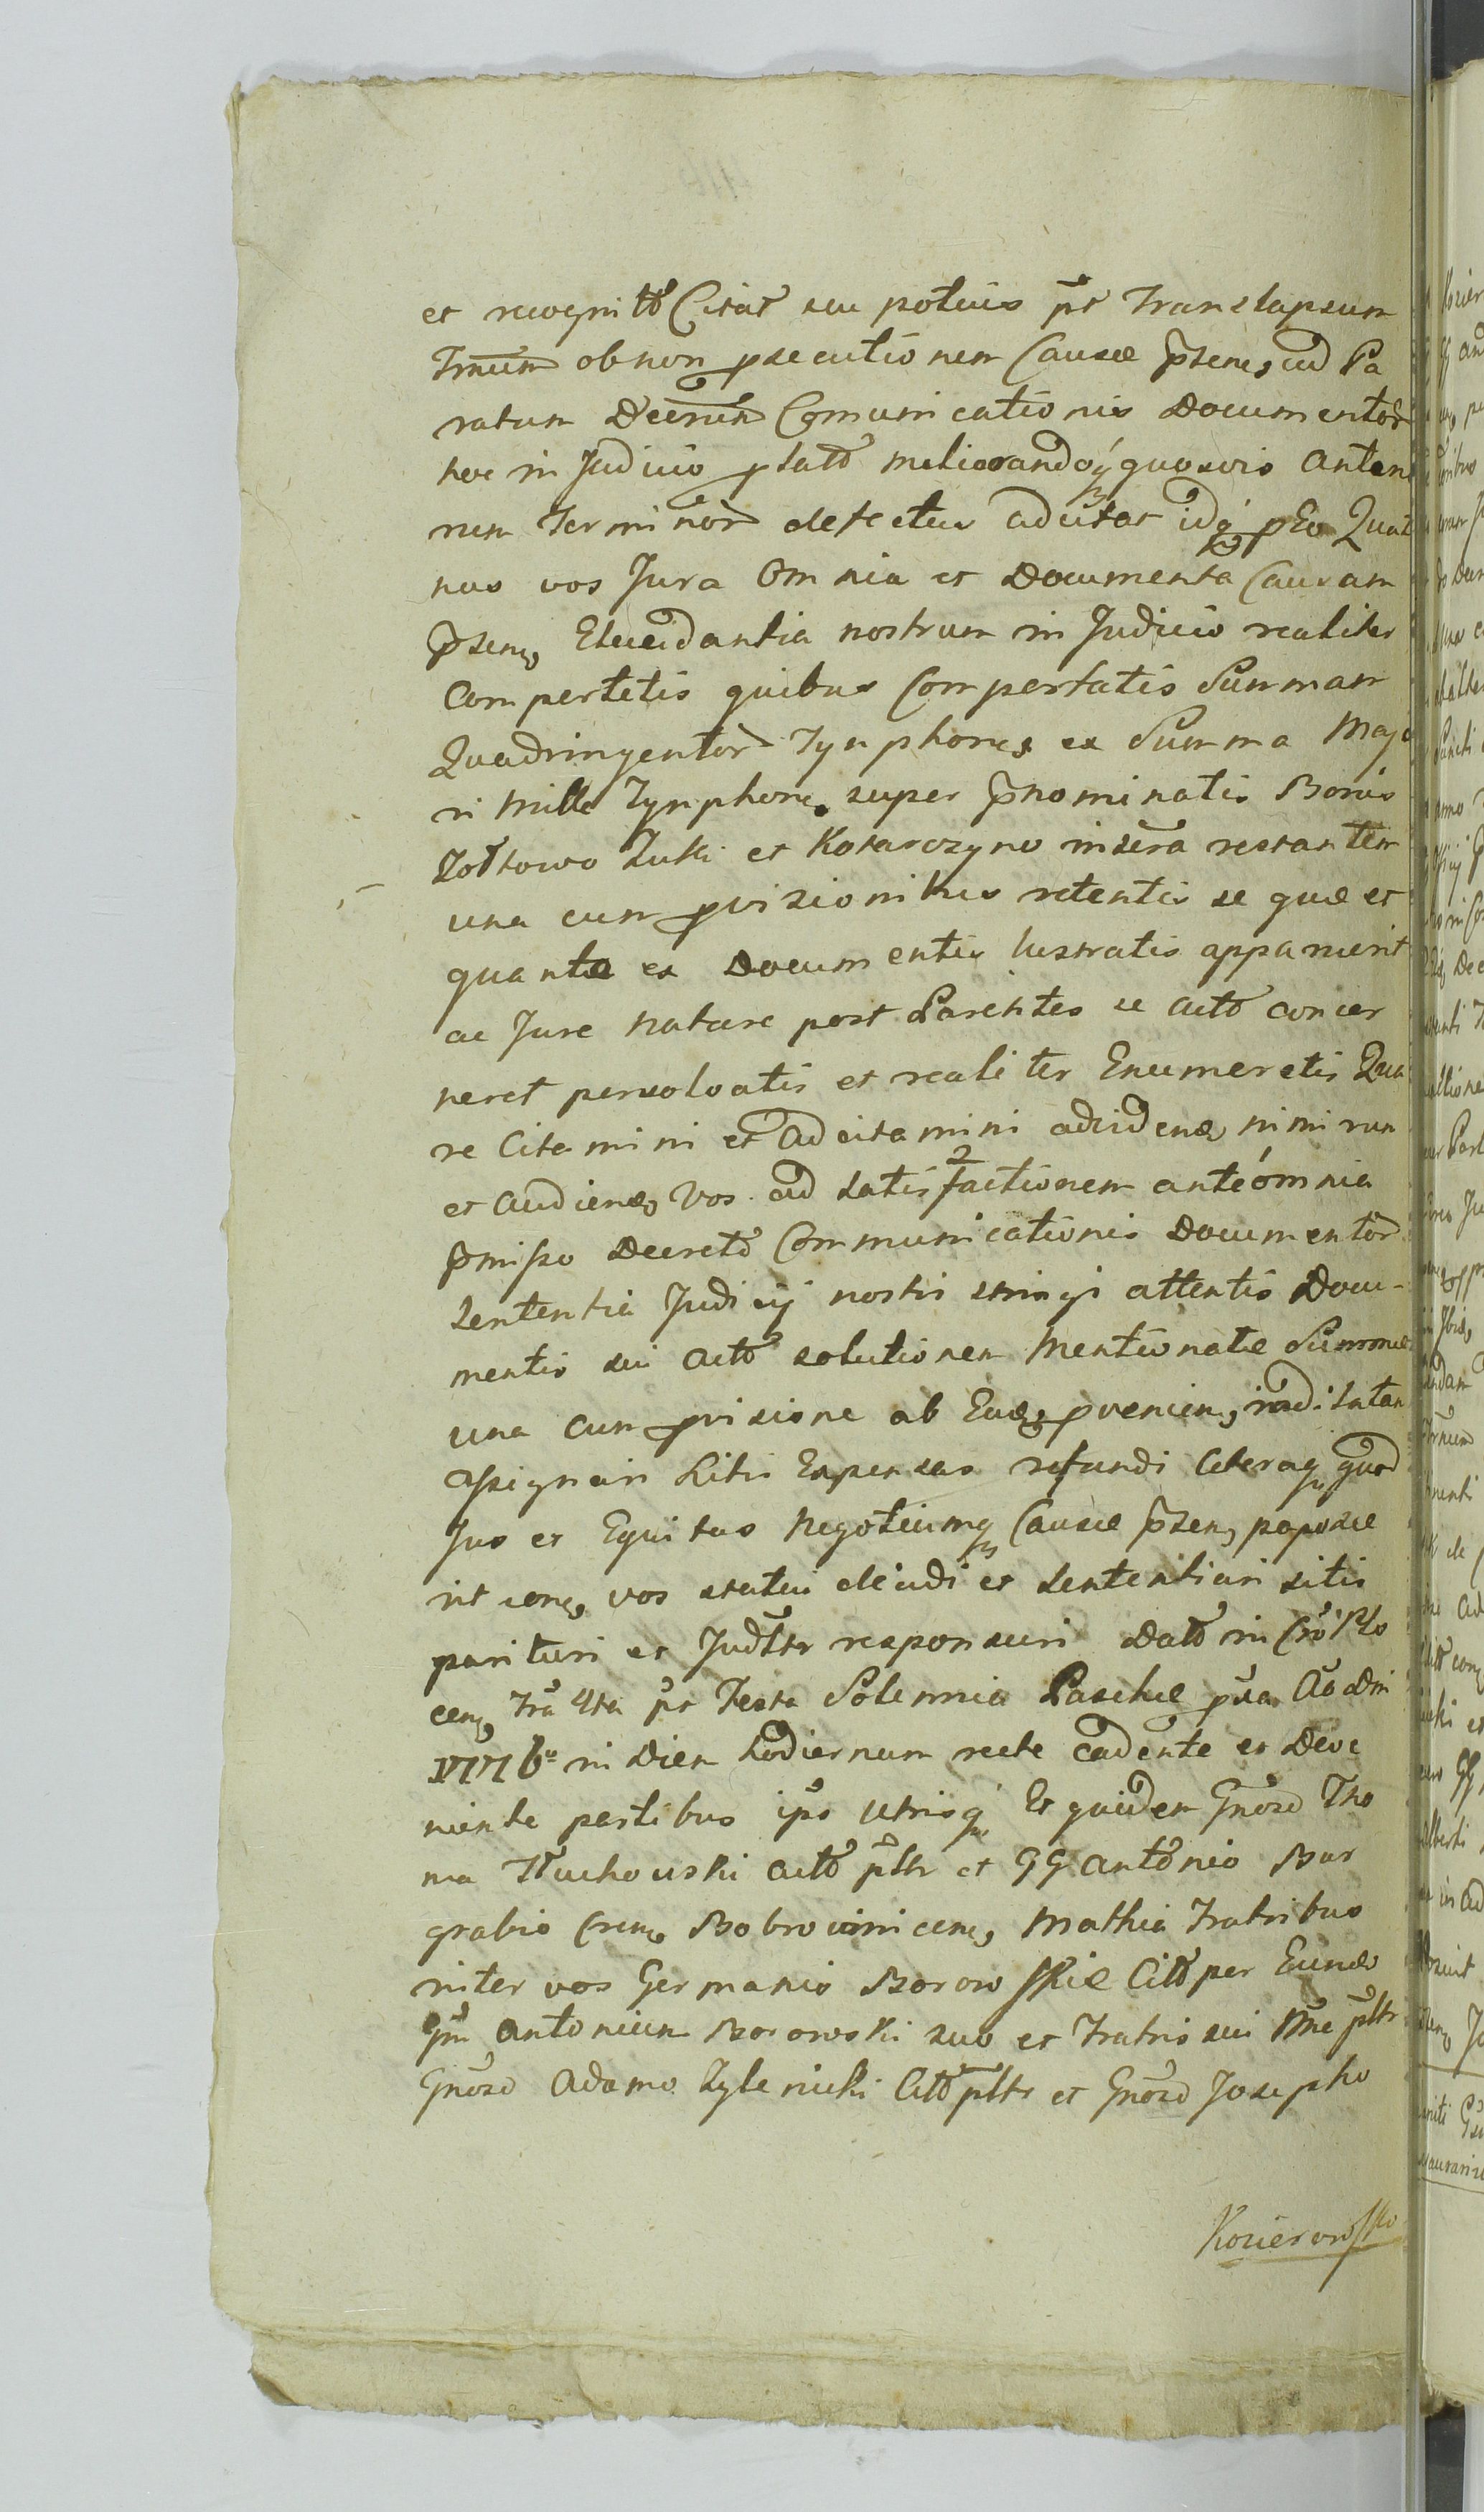 et recognitõ Citat seu potius pt Translapsum
Tmum ob non psecutionem Causæ Psenẽ, ad Pa
ratum Decrum Comunicationis Documentor
hoc in Judicio platõ meliorandoq quosvis Antem
nem Terminor defectus adcitat idq pEo Quat
nus vos Jura Omnia et Documenta Causam
Psenẽ, Elucidantia nostrum in Judicio realiter
Comportetis quibus Comportatis Summam
Quadringentor Tynphonẽ, ex Summa Majo
ri Mille Tynphonẽ, super Pnominatis Bonis
Zołtowo Zuki et Kotarczyno inscra restantem
una cum pvisionibus retentis se quæ et
quantæ ex Documentis lustratis apparuerit
ac Jure naturæ post Parentes se actõ concer
neret persolvatis et realiter Enumeretis Qua
re Citamini et Adcitamini advidenđ, nimirum
et Audienđ, Vos ad satisfactionem ante omnia
Pmisso Decretõ Communicationis Documentor
Sententia Judicij nostri stringi attentis Docu-
mentis sui Actõ solutionem Mentionatæ Summæ
una cum pvisione ab Eađ, pvenien,
Assignari Litis Expensas refundi Ceteraq quæ
Jus et Equitas Negotiumq Causæ Psen, poposce
rit conẽ, vos statui decidi et sententiari sitis
parituri et Judłłr responsuri Datõ in Crõ Plo
cenẽ, Fra 4ta pt Festa Solennia Paschæ pxa Aõ Dni
1776º in Diem hodiernum recte cadente et Deve
niente partibus ips utrisq Et quidem Gnoso Tho
ma Tłuchowski Actõ pltr et GG Antonio Bur
grabio Crenẽ, Bobrownicenẽ, Mathia Fratribus
inter vos Germanis Borowskie Citõ per Eunđ
Gm Antonium Borowski suo et Fratris sui Nne pltr
Gnoso Adamo Zylenicki Citõ pltr et Gnoso Josepho
Kozierowsko